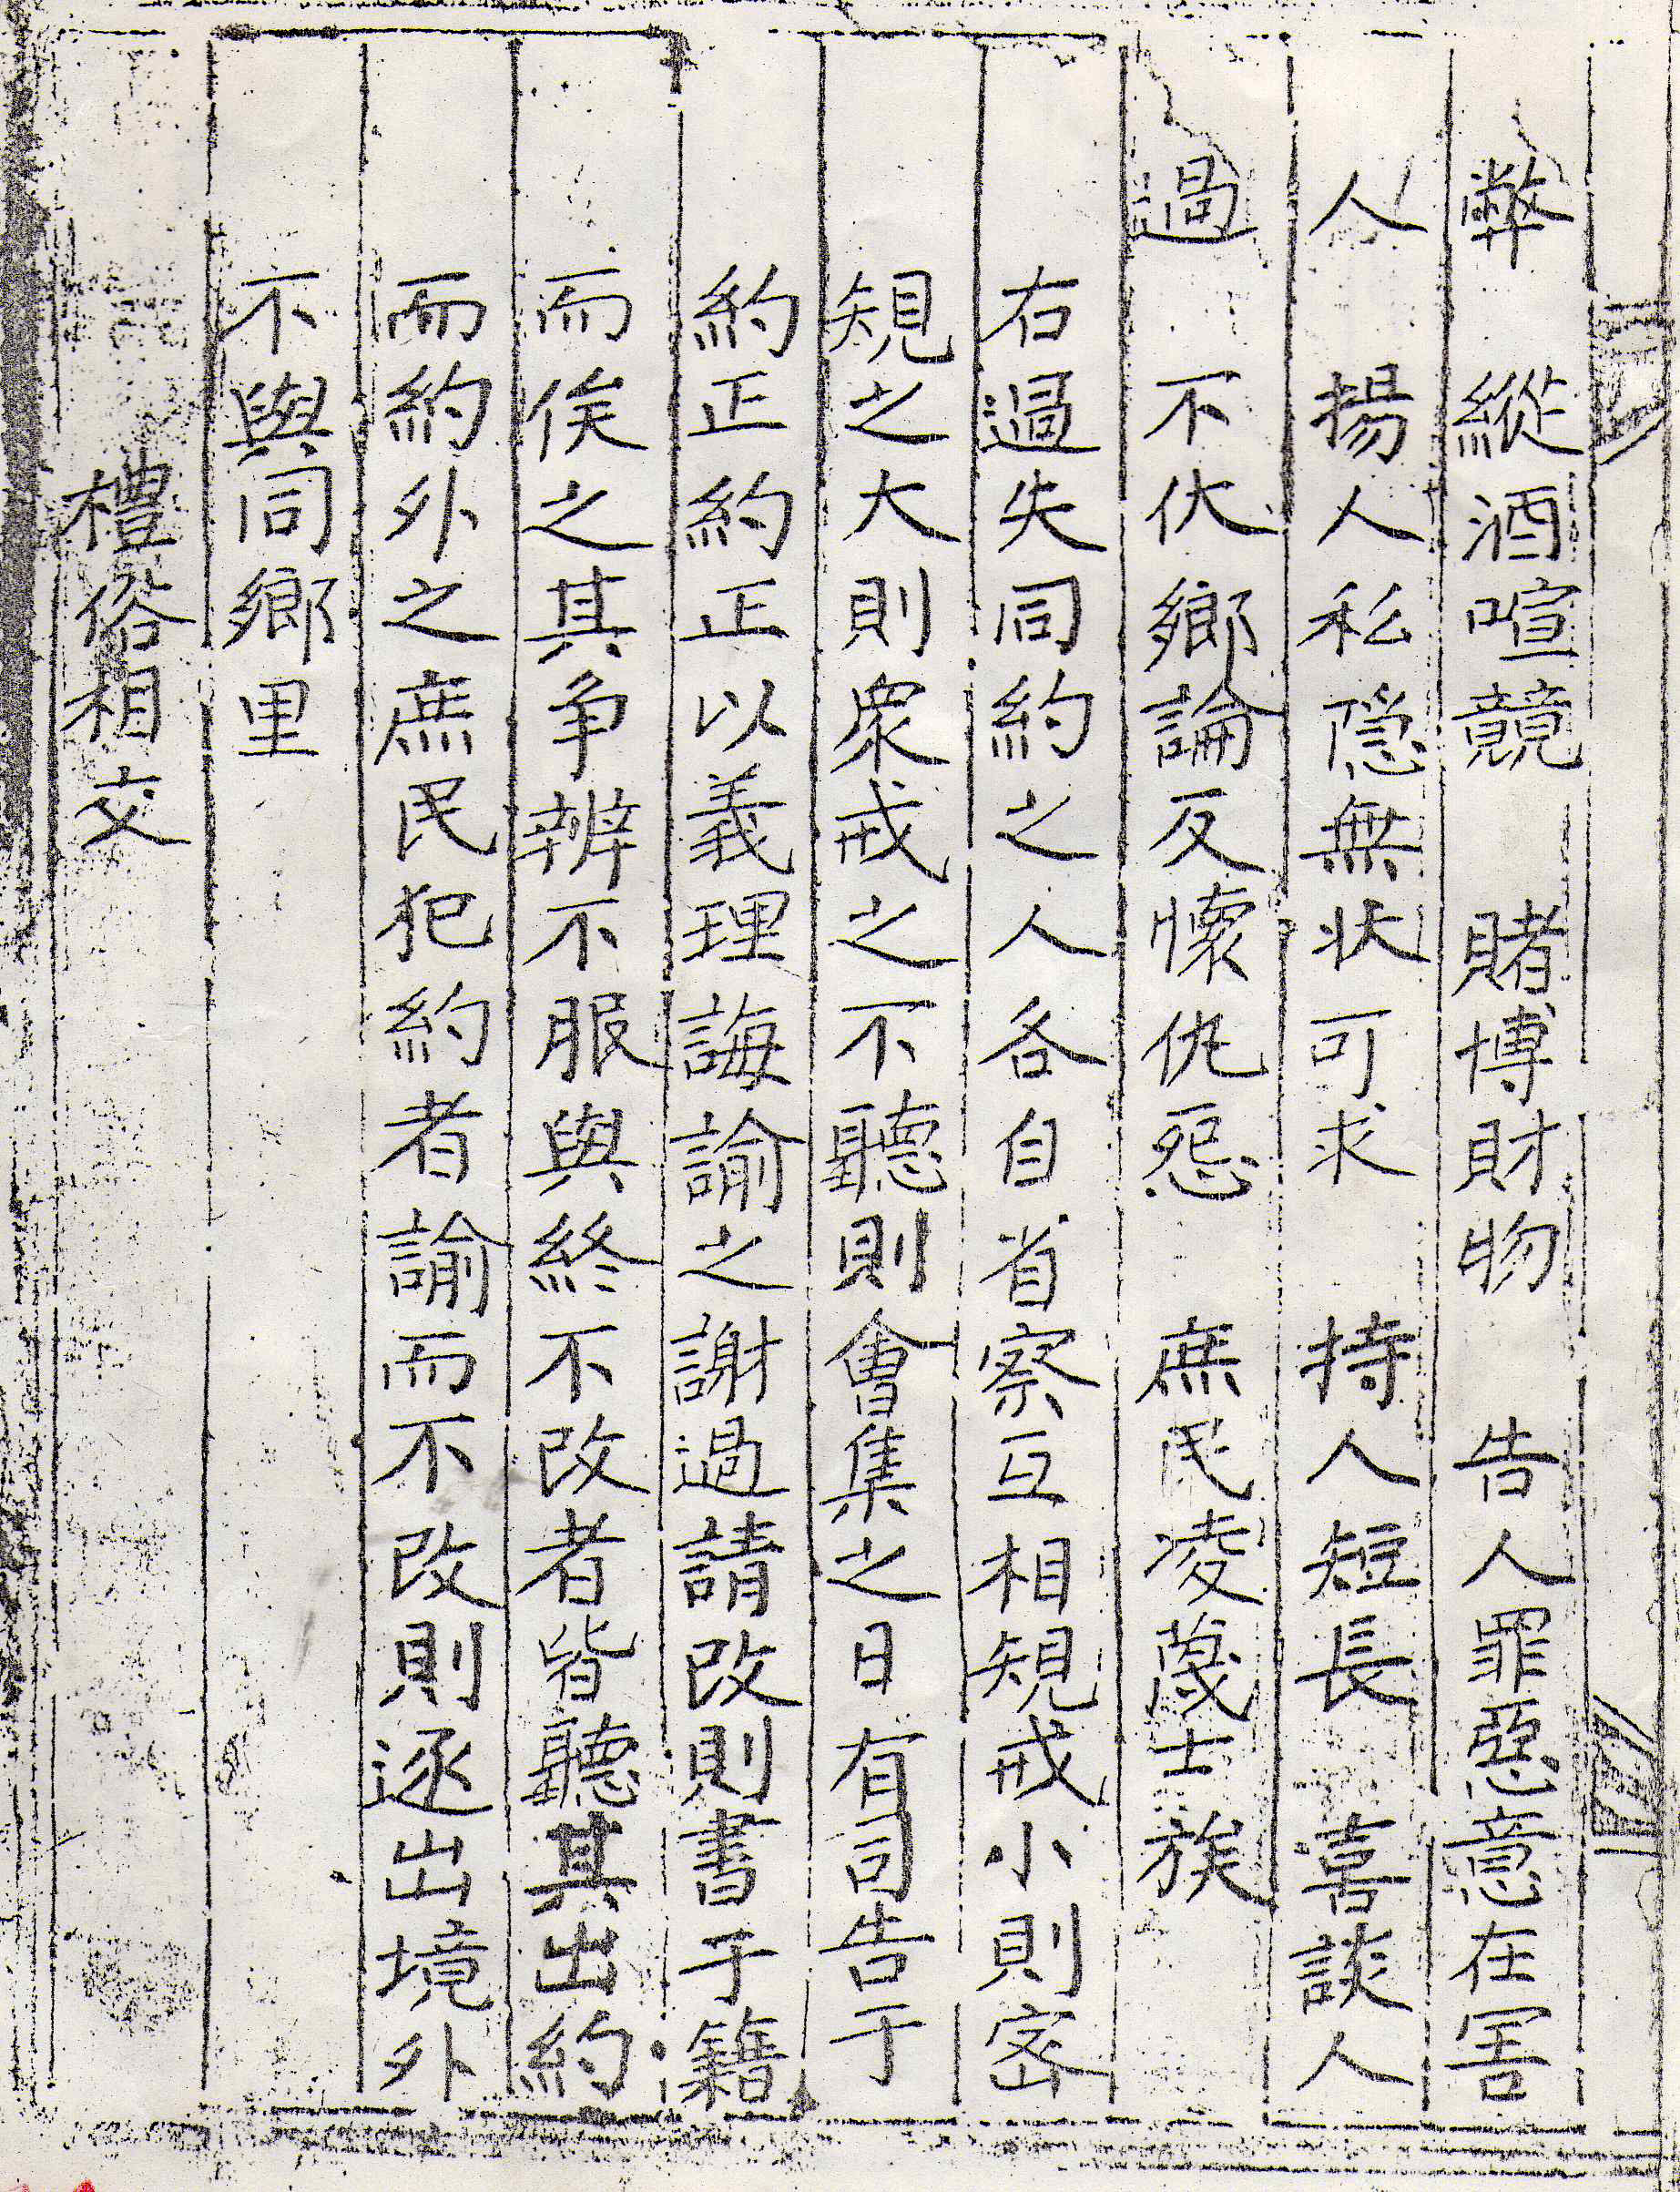 弊 縱酒喧競 賭博財物 告人罪惡意在害
人 揚人私隱無狀可求 持人短長 喜談人
過 不伏鄉論反懷仇怨 庶民凌蔑士族
右過失同約之人各自省察互相規戒小則密
規之大則衆戒之不聽則會集之日有司告于
約正約正以義理誨諭之謝過請改則書于籍
而俟之其爭辨不服與終不改者皆聽其出約
而約外之庶民犯約者諭而不改則逐出境外
不與同鄉里
禮俗相交